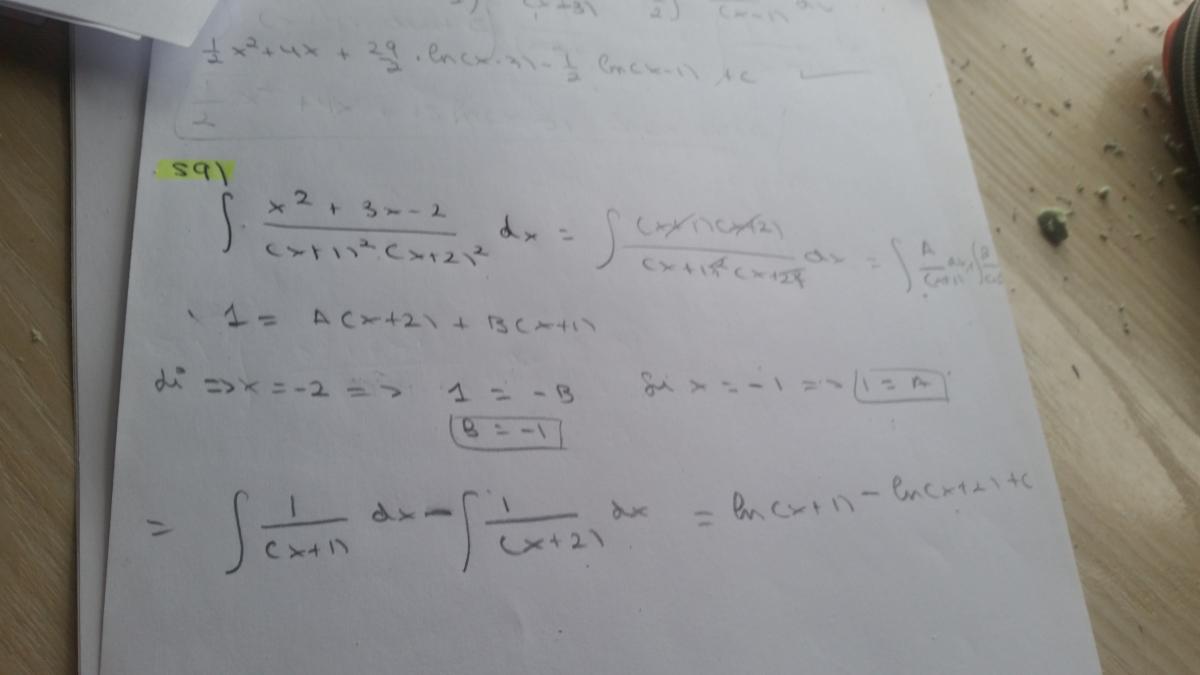 1/2 x² + 4x + 29/2 · ln(x-3) - 1/2 ln(x-1) + c
59)
∫ (x² + 3x - 2)/((x+1)² · (x+2)²) dx = ∫ ((x+1)(x+2))/((x+1)² (x+2)²) dx = ∫ A/(x+1) dx + ∫ B/
1 = A(x+2) + B(x+1)
di => x = -2 => 1 = -B Si x = -1 => 1 = A
B = -1
= ∫ 1/(x+1) dx - ∫ 1/(x+2) dx = ln(x+1) - ln(x+2) + c